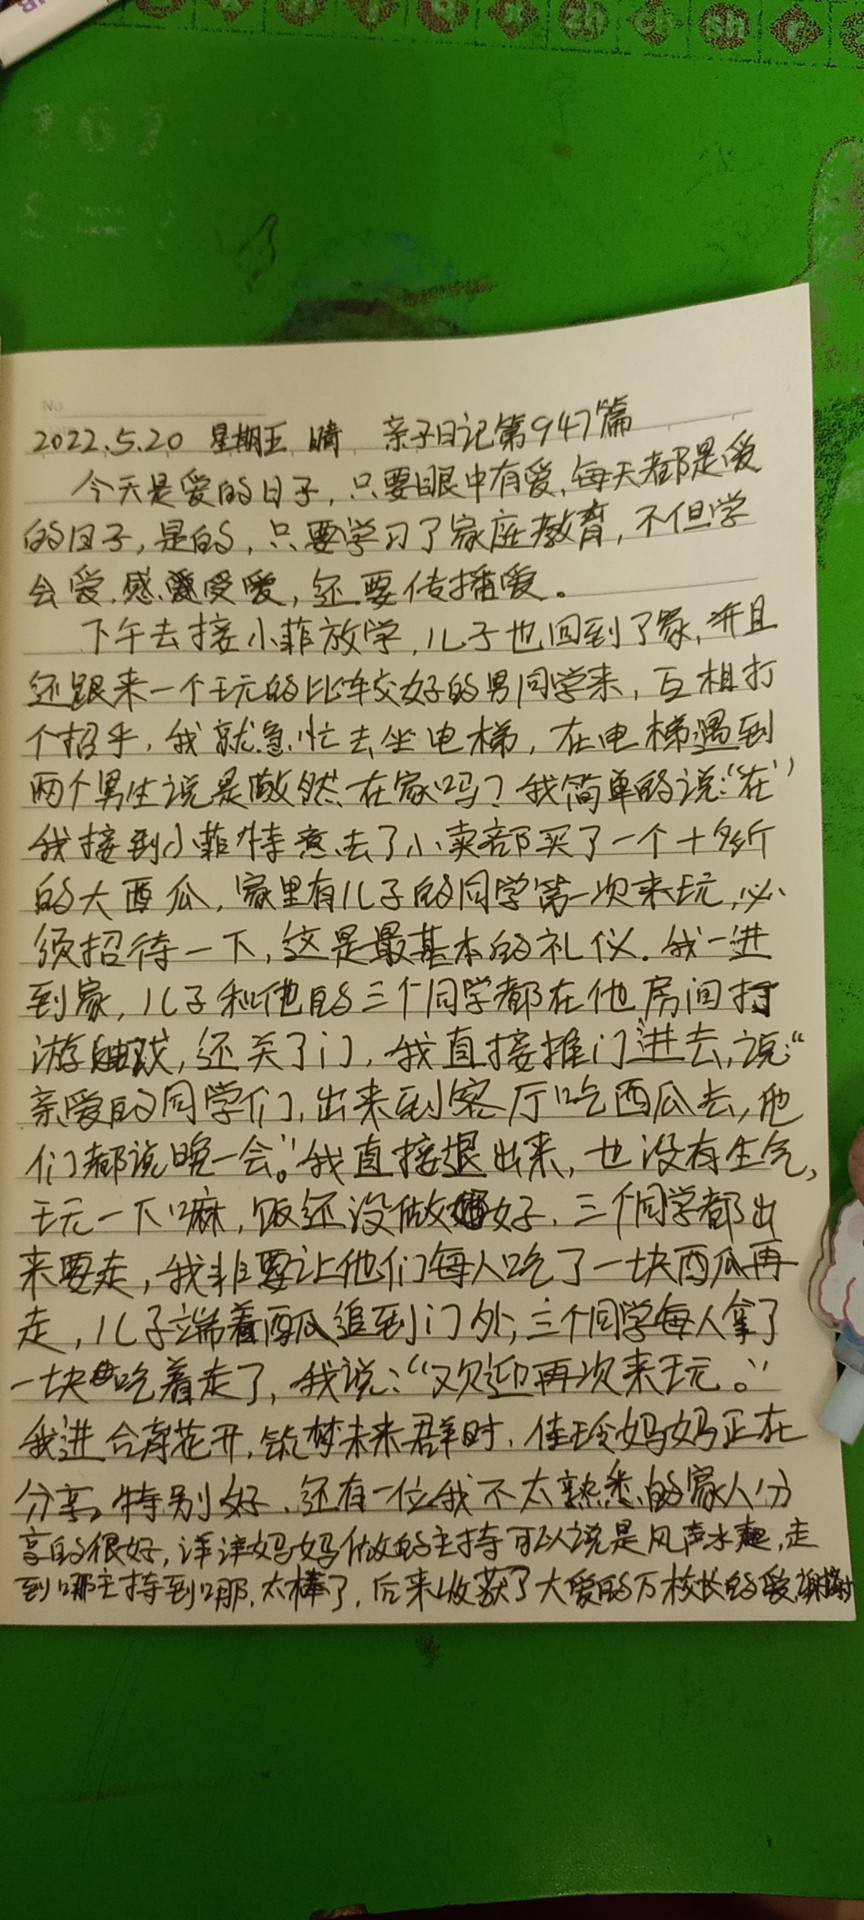 zh ch sh r
No.
2022.5.20 星期五 晴 亲子日记第947篇
今天是爱的日子,只要眼中有爱,每天都是爱
的日子,是的,只要学习了家庭教育,不但学
会爱.感受爱,还要传播爱。
下午去接小菲放学,儿子也回到了家,并且
还跟来一个玩的比较好的男同学来,互相打
个招乎,我就急忙去坐电梯,在电梯遇到
两个男生说是浩然在家吗?我简单的说:“在”
我接到小菲特意去了小卖部买了一个十多斤
的大西瓜,家里有儿子的同学第一次来玩,必
须招待一下,这是最基本的礼仪.我一进
到家,儿子和他的三个同学都在他房间打
游戏,还关了门,我直接推门进去,说:“
亲爱的同学们,出来到客厅吃西瓜去,他
们都说晚一会。”我直接退出来,也没有生气,
玩一下嘛,饭还没做好.三个同学都出
来要走,我非要让他们每人吃了一块西瓜再
走,儿子端着西瓜追到门外,三个同学每人拿了
一块吃着走了,我说:“欢迎再次来玩。”
我进合育花开,筑梦未来群时,佳玲妈妈正在
分享,特别好,还有一位我不太熟悉的家人分
享的很好,洋洋妈妈做的主持可以说是风声水起,走
到哪主持到哪,太棒了,后来收获了大爱的万校长的爱,谢谢